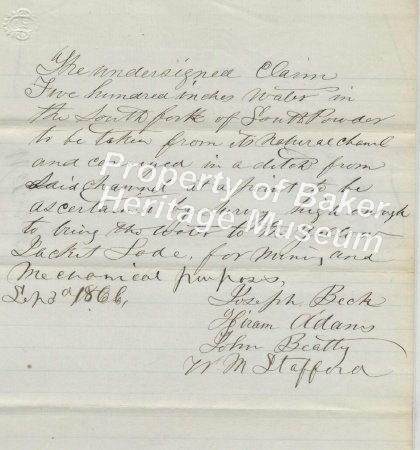 The undersigned Claim
Five hundred inches Water in
the South fork of South Powder
to be taken from its Natural Chanel
and conveyed in a ditch from
Said channel at a point to be
ascertained by survey high enough
to bring the Water to the Yellow
Jacket Lode, for Mining and
Mechanical purposes,
Sep 3d 1866,
Joseph Beck
Hiram Adams
John Beatty
W M Stafford
Property of Baker
Heritage Museum